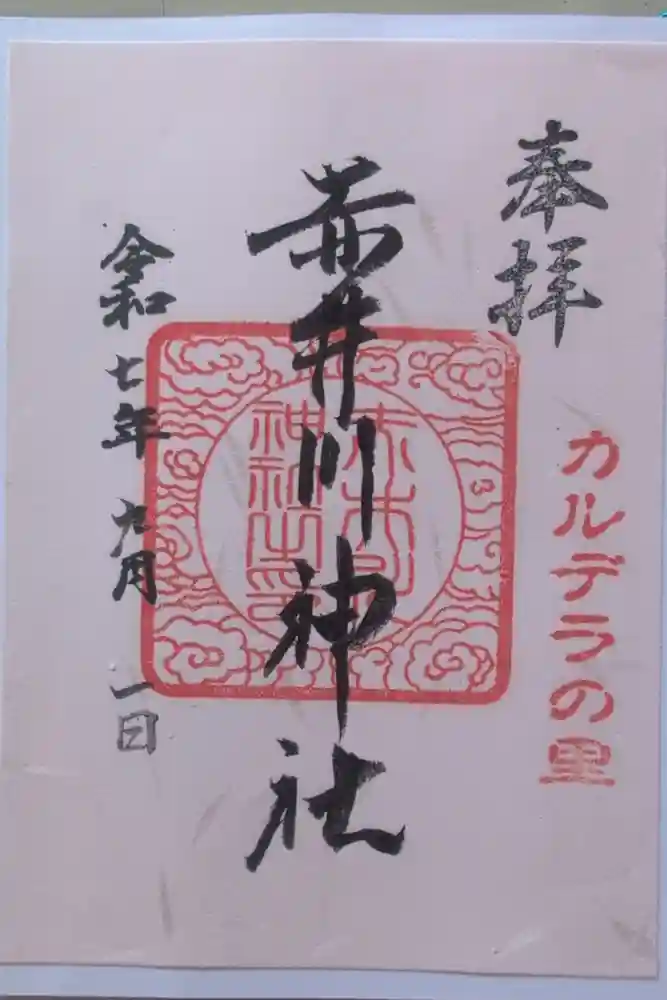 奉拝
カルデラの里
赤井川神社
令和七年九月一日